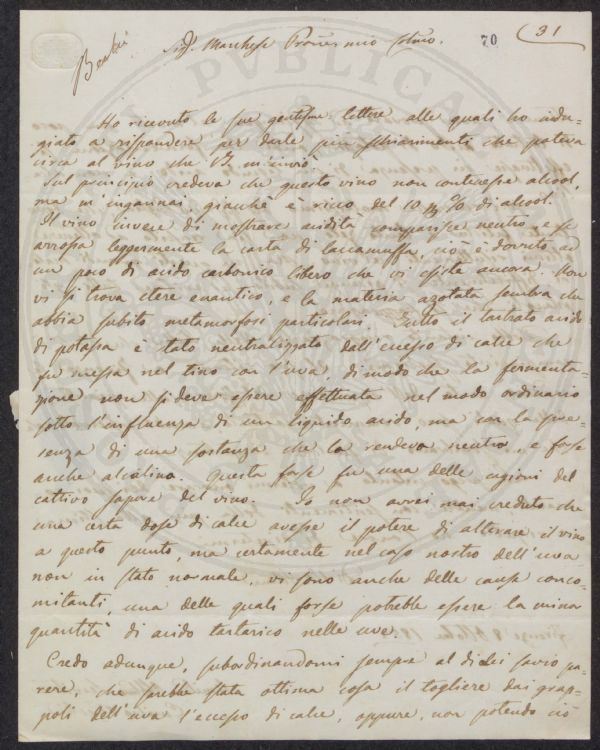 70 (31
Sig. Marchese Pron̄e mio Stim̄o.
Ho ricevuto le sue gentisme lettere alle quali ho indu-
giato a rispondere per darle più schiarimenti che poteva
circa al vino che m'inviò.
Sul principio credeva che questo vino non contenesse alcool,
ma m'ingannai, giacchè è ricco del 10 % di alcool.
Il vino invece di mostrare acidità comparisce neutro, e se
arrossa leggermente la carta di laccamuffa, ciò è dovuto ad
un poco di acido carbonico libero che vi esiste ancora. Non
vi si trova etere enantico, e la materia azotata sembra che
abbia subito metamorfosi particolari. Tutto il tartrato acido
di potassa è stato neutralizzato dall'eccesso di calce che
fu messa nel tino con l'uva, di modo che la fermenta-
zione non si deve essere effettuata nel modo ordinario
sotto l'influenza di un liquido acido, ma con la pre-
senza di una sostanza che lo rendeva neutro, e forse
anche alcalino. Questa forse fu una delle cagioni del
cattivo sapore del vino. Io non avrei mai creduto che
una certa dose di calce avesse il potere di alterare il vino
a questo punto, ma certamente nel caso nostro dell'uva
non in stato normale, vi sono anche delle cause conco-
mitanti, una delle quali forse potrebbe essere la minor
quantità di acido tartarico nelle uve.
Credo adunque, subordinandomi sempre al di Lei savio pa-
rere, che sarebbe stata ottima cosa il togliere dai grap-
poli dell'uva l'eccesso di calce, oppure, non potendo ciò